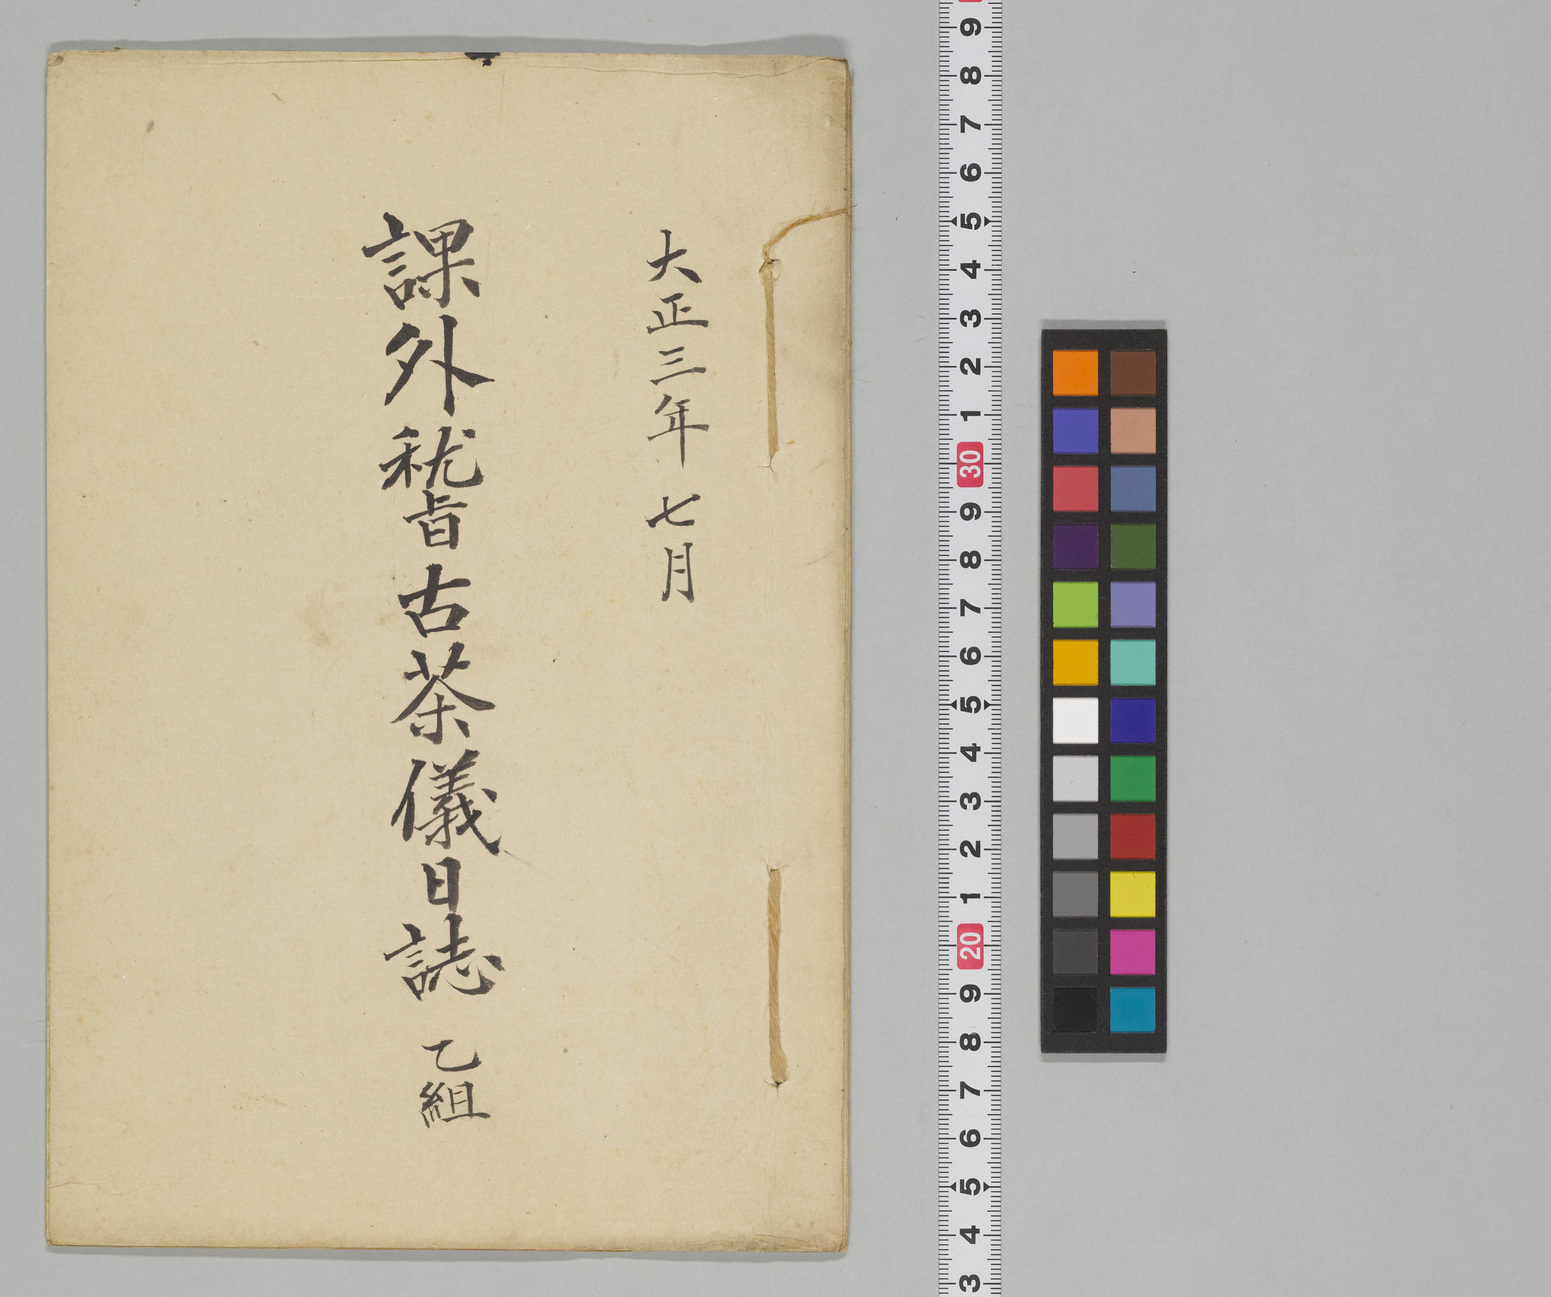 大正三年七月
課外稽古茶儀日誌 乙組
9
8
7
6
5
4
3
2
1
30
9
8
7
6
5
4
3
2
1
20
9
8
7
6
5
4
3